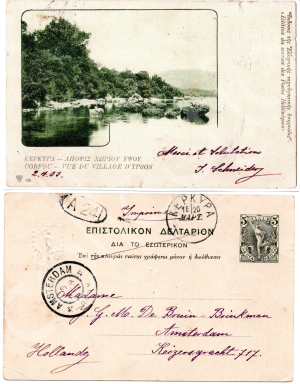 ΚΕΡΚΥΡΑ — ΑΠΟΨΙΣ ΧΩΡΙΟΥ ΥΨΟΥ
CORFOU — VUE DU VILLAGE D'YPSOS
2.4.03.
Merci et Salutations
A 24
Imprimé
ΚΕΡΚΥΡΑ
ΜΑΡΤ.
ΕΠΙΣΤΟΛΙΚΟΝ ΔΕΛΤΑΡΙΟΝ
ΔΙΑ ΤΟ ΕΣΩΤΕΡΙΚΟΝ
Ἐπὶ τῆς πλευρᾶς ταύτης γράφεται μόνον ἡ διεύθυνσις
5
AMSTERDAM
Madame
G. M. De Bruin - Brinkman
Amsterdam
Hollande
Keizersgracht 717.